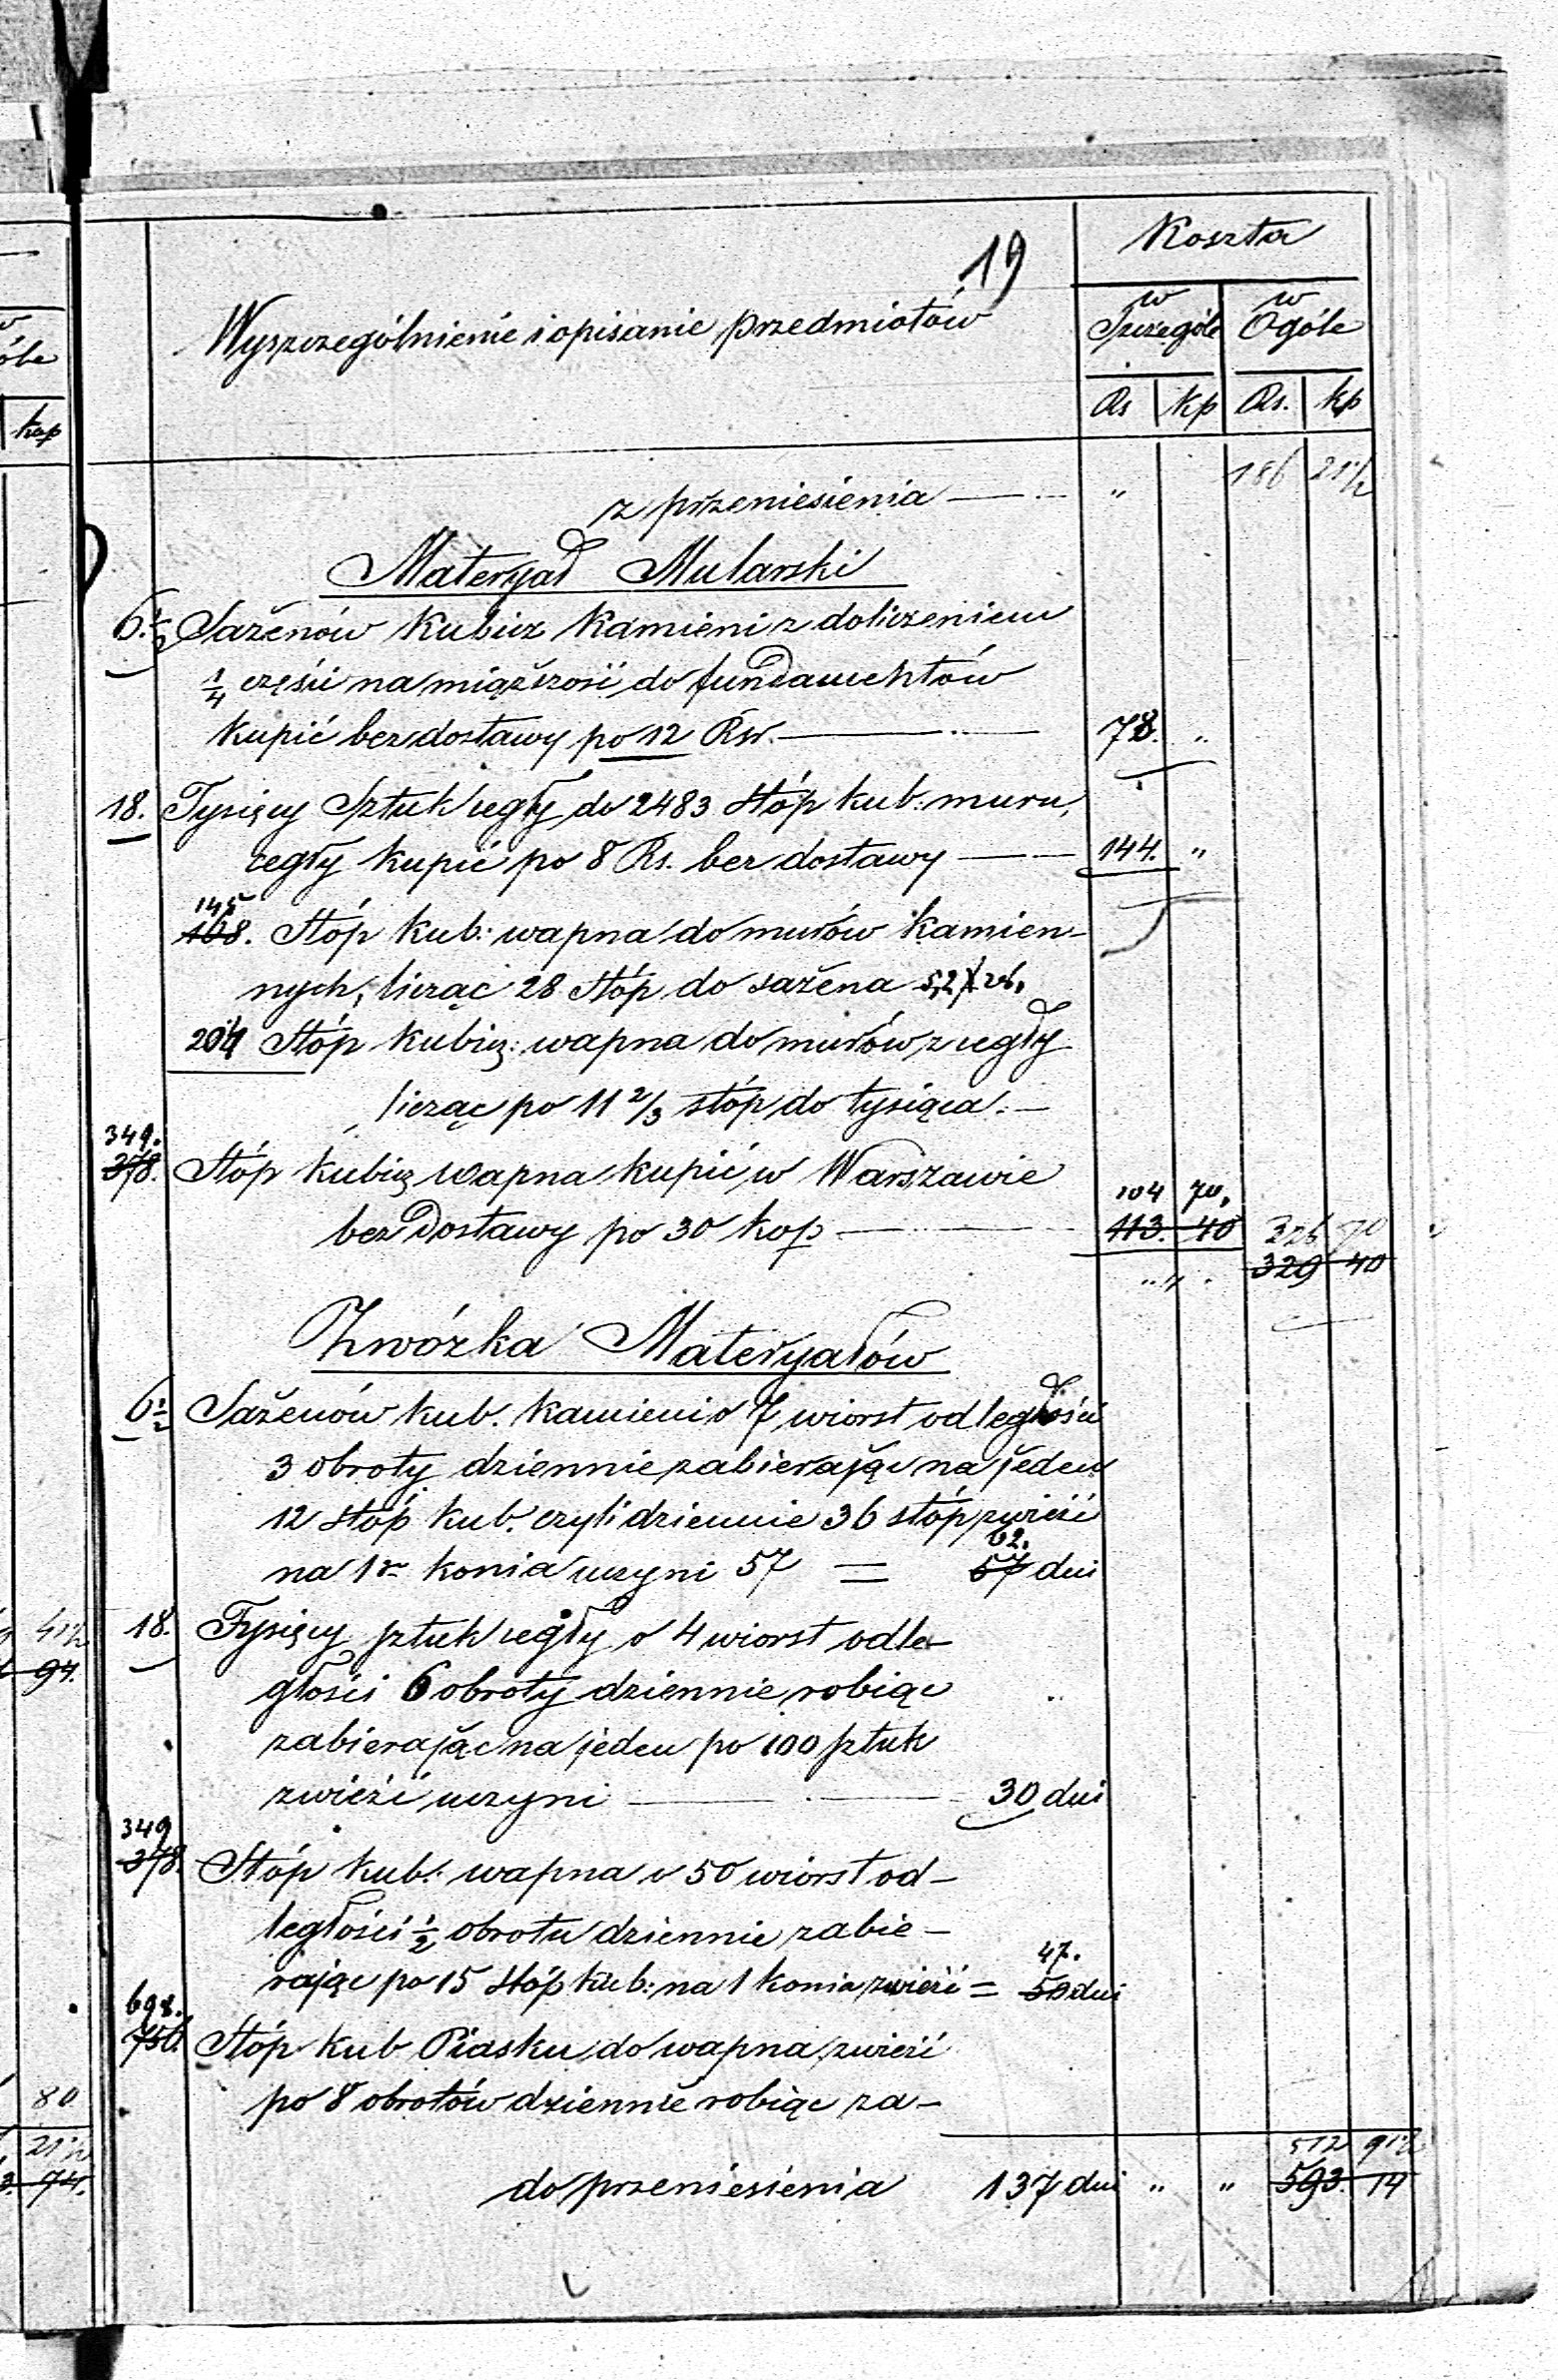 19
Koszta
Wyszczególnienie i opisanie przedmiotów
w Szczególe
w Ogóle
Rs kp Rs. kp
z przeniesienia — „ 186 21½
Materyał Mularski
6.½ Sażenów kubicz kamieni z doliczeniem
¼ części na miąższość do fundamentów
kupić bez dostawy po 12 Rsr. — 78. „
18. Tysięcy Sztuk cegły do 2483 stóp kub: muru,
cegły kupić po 8 Rs. bez dostawy — 144. „
145
168. Stóp kub: wapna do murów kamien-
nych, licząc 28 stóp do sażena
204 Stóp kubicz: wapna do murów z cegły
licząc po 11 2/3 stóp do tysiąca. —
349.
378. Stóp kubicz wapna kupić w Warszawie
104 70.
bez dostawy po 30 kop — 113. 40 326 70
„ „ 329 40
Zwózka Materyałów
6½ Sażenów kub. kamieni o 7 wiorst odległości
3 obroty dziennie zabierając na jeden
12 stóp kub. czyli dziennie 36 stóp zwieść
62.
na 1o konia uczyni 57 = 57 dni
18. Tysięcy sztuk cegły o 4 wiorst odle-
głości 6 obroty dziennie robiąc
zabierając na jeden po 100 sztuk
zwieźć uczyni — 30 dni
349
378. Stóp kub: wapna o 50 wiorst od-
ległości ½ obrotu dziennie zabie-
47.
rając po 15 stóp kub: na 1 konia zwieźć = 50 dni
698.
756. Stóp kub Piasku do wapna zwieźć
po 8 obrotów dziennie robiąc za-
512 91½
do przeniesienia 137 dni „ „ 593. 14
óle
kop
41½
94.
80
21½
74.